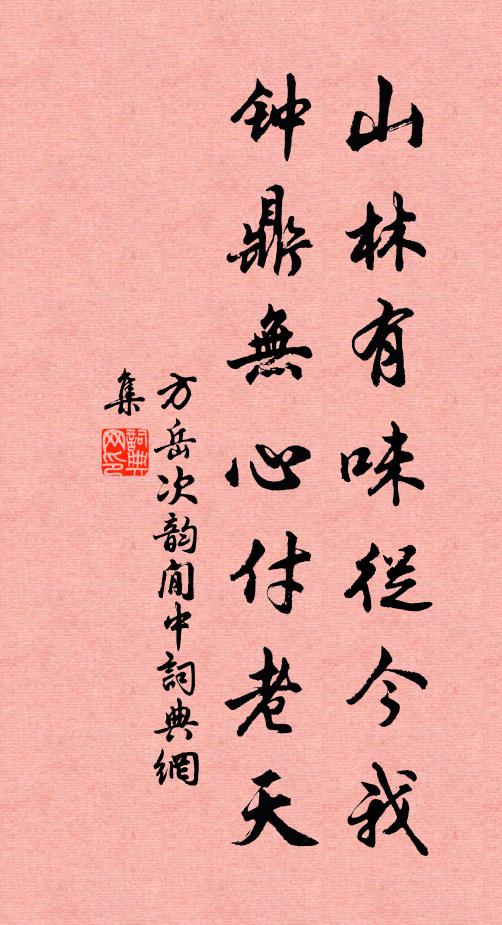 山林有味從今我
钟鼎無心付老天
方岳次韵閒中詞典網
集
詞典网印